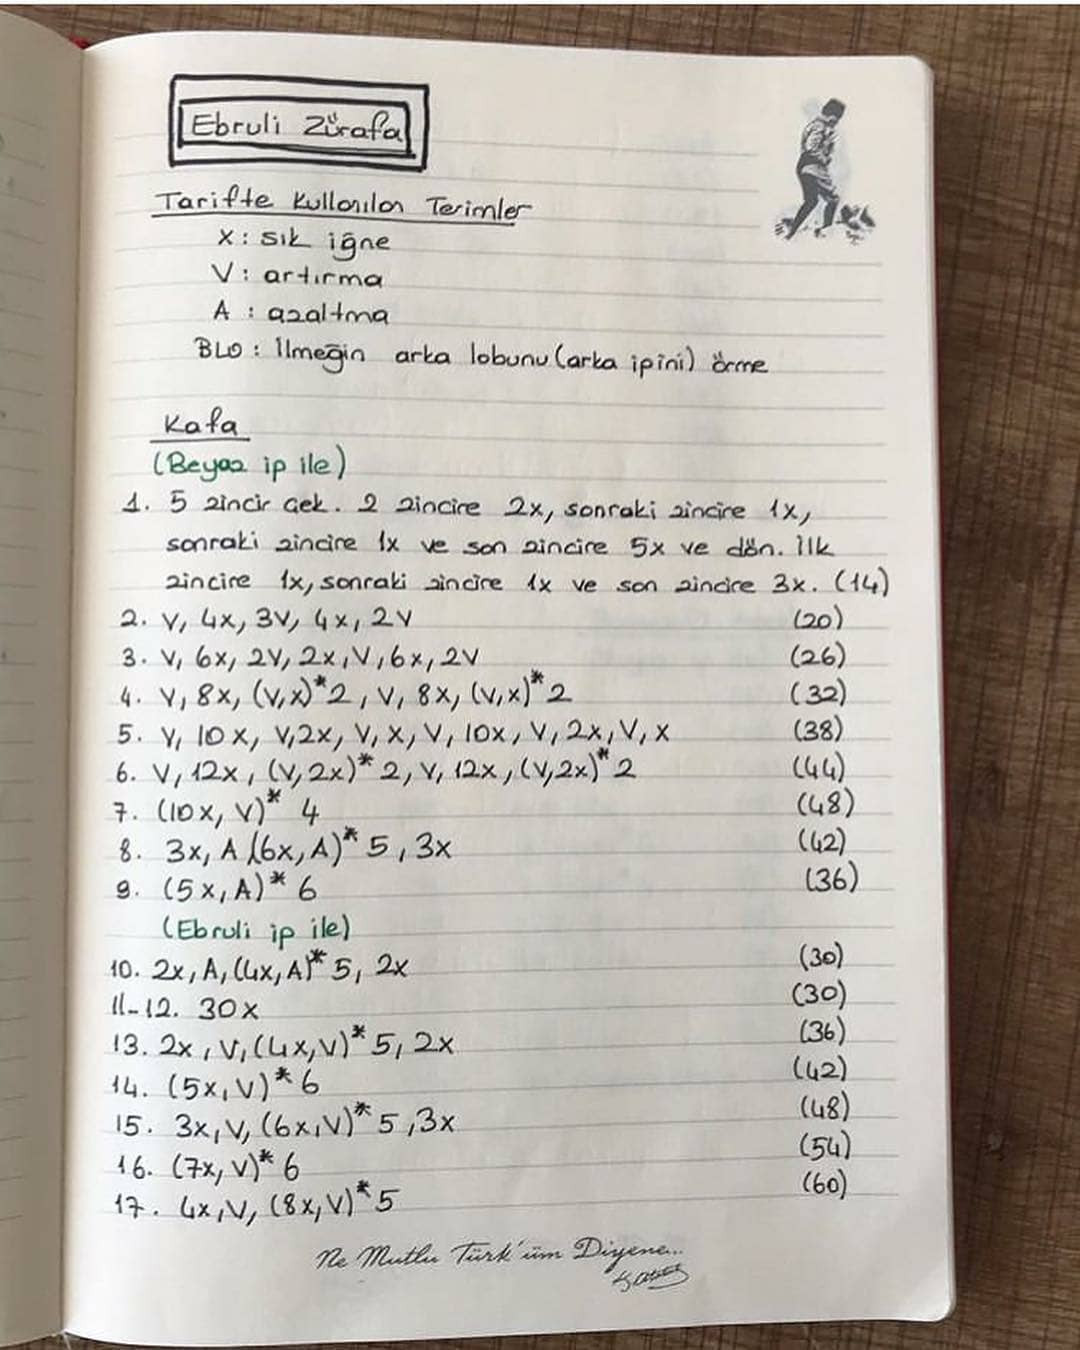 Ebruli Zürafa
Tarifte Kullanılan Terimler
X : sık iğne
V : artırma
A : azaltma
BLO : İlmeğin arka lobunu (arka ipini) örme
Kafa
(Beyaz ip ile)
1. 5 zincir çek. 2 zincire 2x, sonraki zincire 1x,
sonraki zincire 1x ve son zincire 5x ve dön. İlk
zincire 1x, sonraki zincire 1x ve son zincire 3x. (14)
2. V, 4x, 3V, 4x, 2V (20)
3. V, 6x, 2V, 2x, V, 6x, 2V (26)
4. V, 8x, (V,x)*2, V, 8x, (V,x)*2 (32)
5. V, 10x, V, 2x, V, x, V, 10x, V, 2x, V, x (38)
6. V, 12x, (V, 2x)*2, V, 12x, (V, 2x)*2 (44)
7. (10x, V)* 4 (48)
8. 3x, A (6x, A)* 5, 3x (42)
9. (5x, A)* 6 (36)
(Ebruli ip ile)
10. 2x, A, (4x, A)* 5, 2x (30)
11-12. 30x (30)
13. 2x, V, (4x, V)* 5, 2x (36)
14. (5x, V)* 6 (42)
15. 3x, V, (6x, V)* 5, 3x (48)
16. (7x, V)* 6 (54)
17. 4x, V, (8x, V)* 5 (60)
Ne Mutlu Türk'üm Diyene...